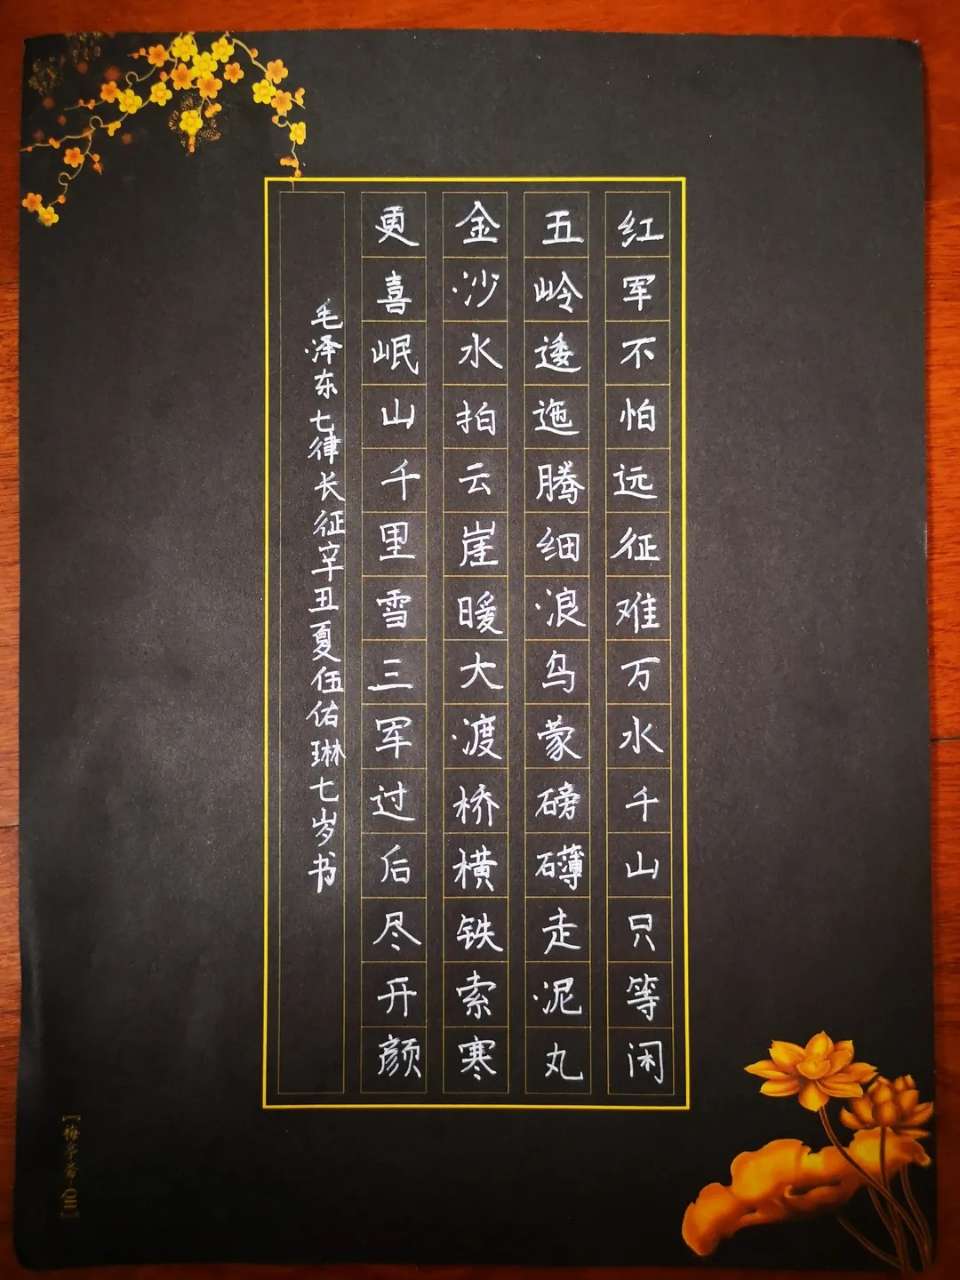 红军不怕远征难万水千山只等闲
五岭逶迤腾细浪乌蒙磅礴走泥丸
金沙水拍云崖暖大渡桥横铁索寒
更喜岷山千里雪三军过后尽开颜
毛泽东七律长征辛丑夏伍佑琳七岁书